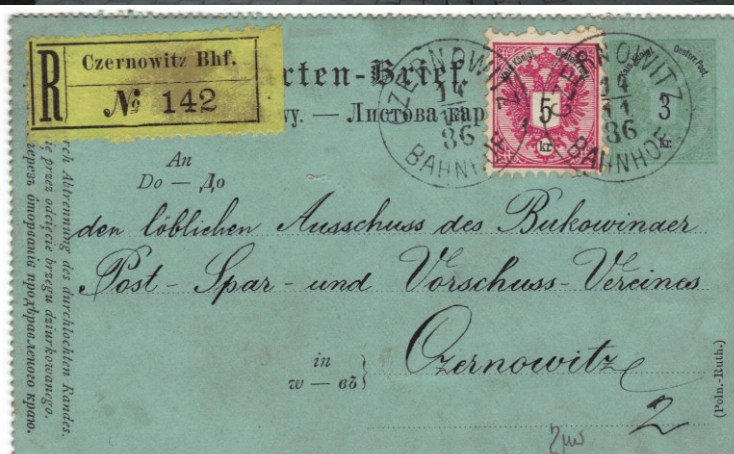 R
Czernowitz Bhf.
№ 142
rten-Brief.
wy. — Листова кар
ZERNOWITZ
14
11
86
BAHNHOF
Kais. Königl. Oesterr. Post
5
kr.
CZERNOWITZ
14
11
86
BAHNHOF
Oesterr. Post
3
Kr.
An
Do — До
den löblichen Ausschuss des Bukowinaer
Post-Spar- und Vorschuss-Vereines
in
w — въ
Czernowitz
2
rch Abtrennung des durchlochten Randes.
ię przez odcięcie brzegu dziurkowanego.
черезъ оторванїе продѣравленого краю.
(Poln.-Ruth.)